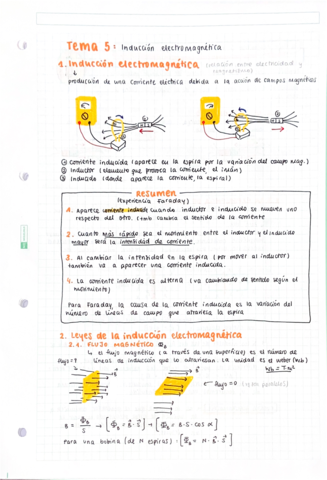 Tema 5: Inducción electromagnética
1. Inducción electromagnética (relación entre electricidad y magnetismo)
↓
producción de una corriente eléctrica debida a la acción de campos magnéticos
① corriente inducida (aparece en la espira por la variación del campo mag.)
② Inductor (elemento que provoca la corriente, el imán)
③ Inducido (donde aparece la corriente, la espira)
Resumen
(Experiencia Faraday)
1. Aparece corriente inducida cuando inductor e inducido se mueven uno
respecto del otro.
cambia el sentido de la corriente
2. Cuanto más rápido sea el movimiento entre el inductor y el inducido
mayor será la intensidad de corriente.
3. Al cambiar la intentidad en la espira (por mover al inductor)
también va a aparecer una corriente inducida.
4. La corriente inducida es alterna (va cambiando de sentido según el
movimiento)
Para Faraday, la causa de la corriente inducida es la variación del
número de líneas de campo que atraviesa la espira
2. Leyes de la inducción electromagnética
2.1. FLUJO MAGNÉTICO ΦB
↳ es flujo magnético (a través de una superficie) es el número de
líneas de inducción que la atraviesan. La unidad es el weber (Wb)
Flujo = ↑
Wb = T·m²
Flujo = 0
B = ΦB / S → [ΦB = B · S] → [ΦB = B · S · cos α]
Para una bobina (de N espiras) · [ΦB = N · B · S]